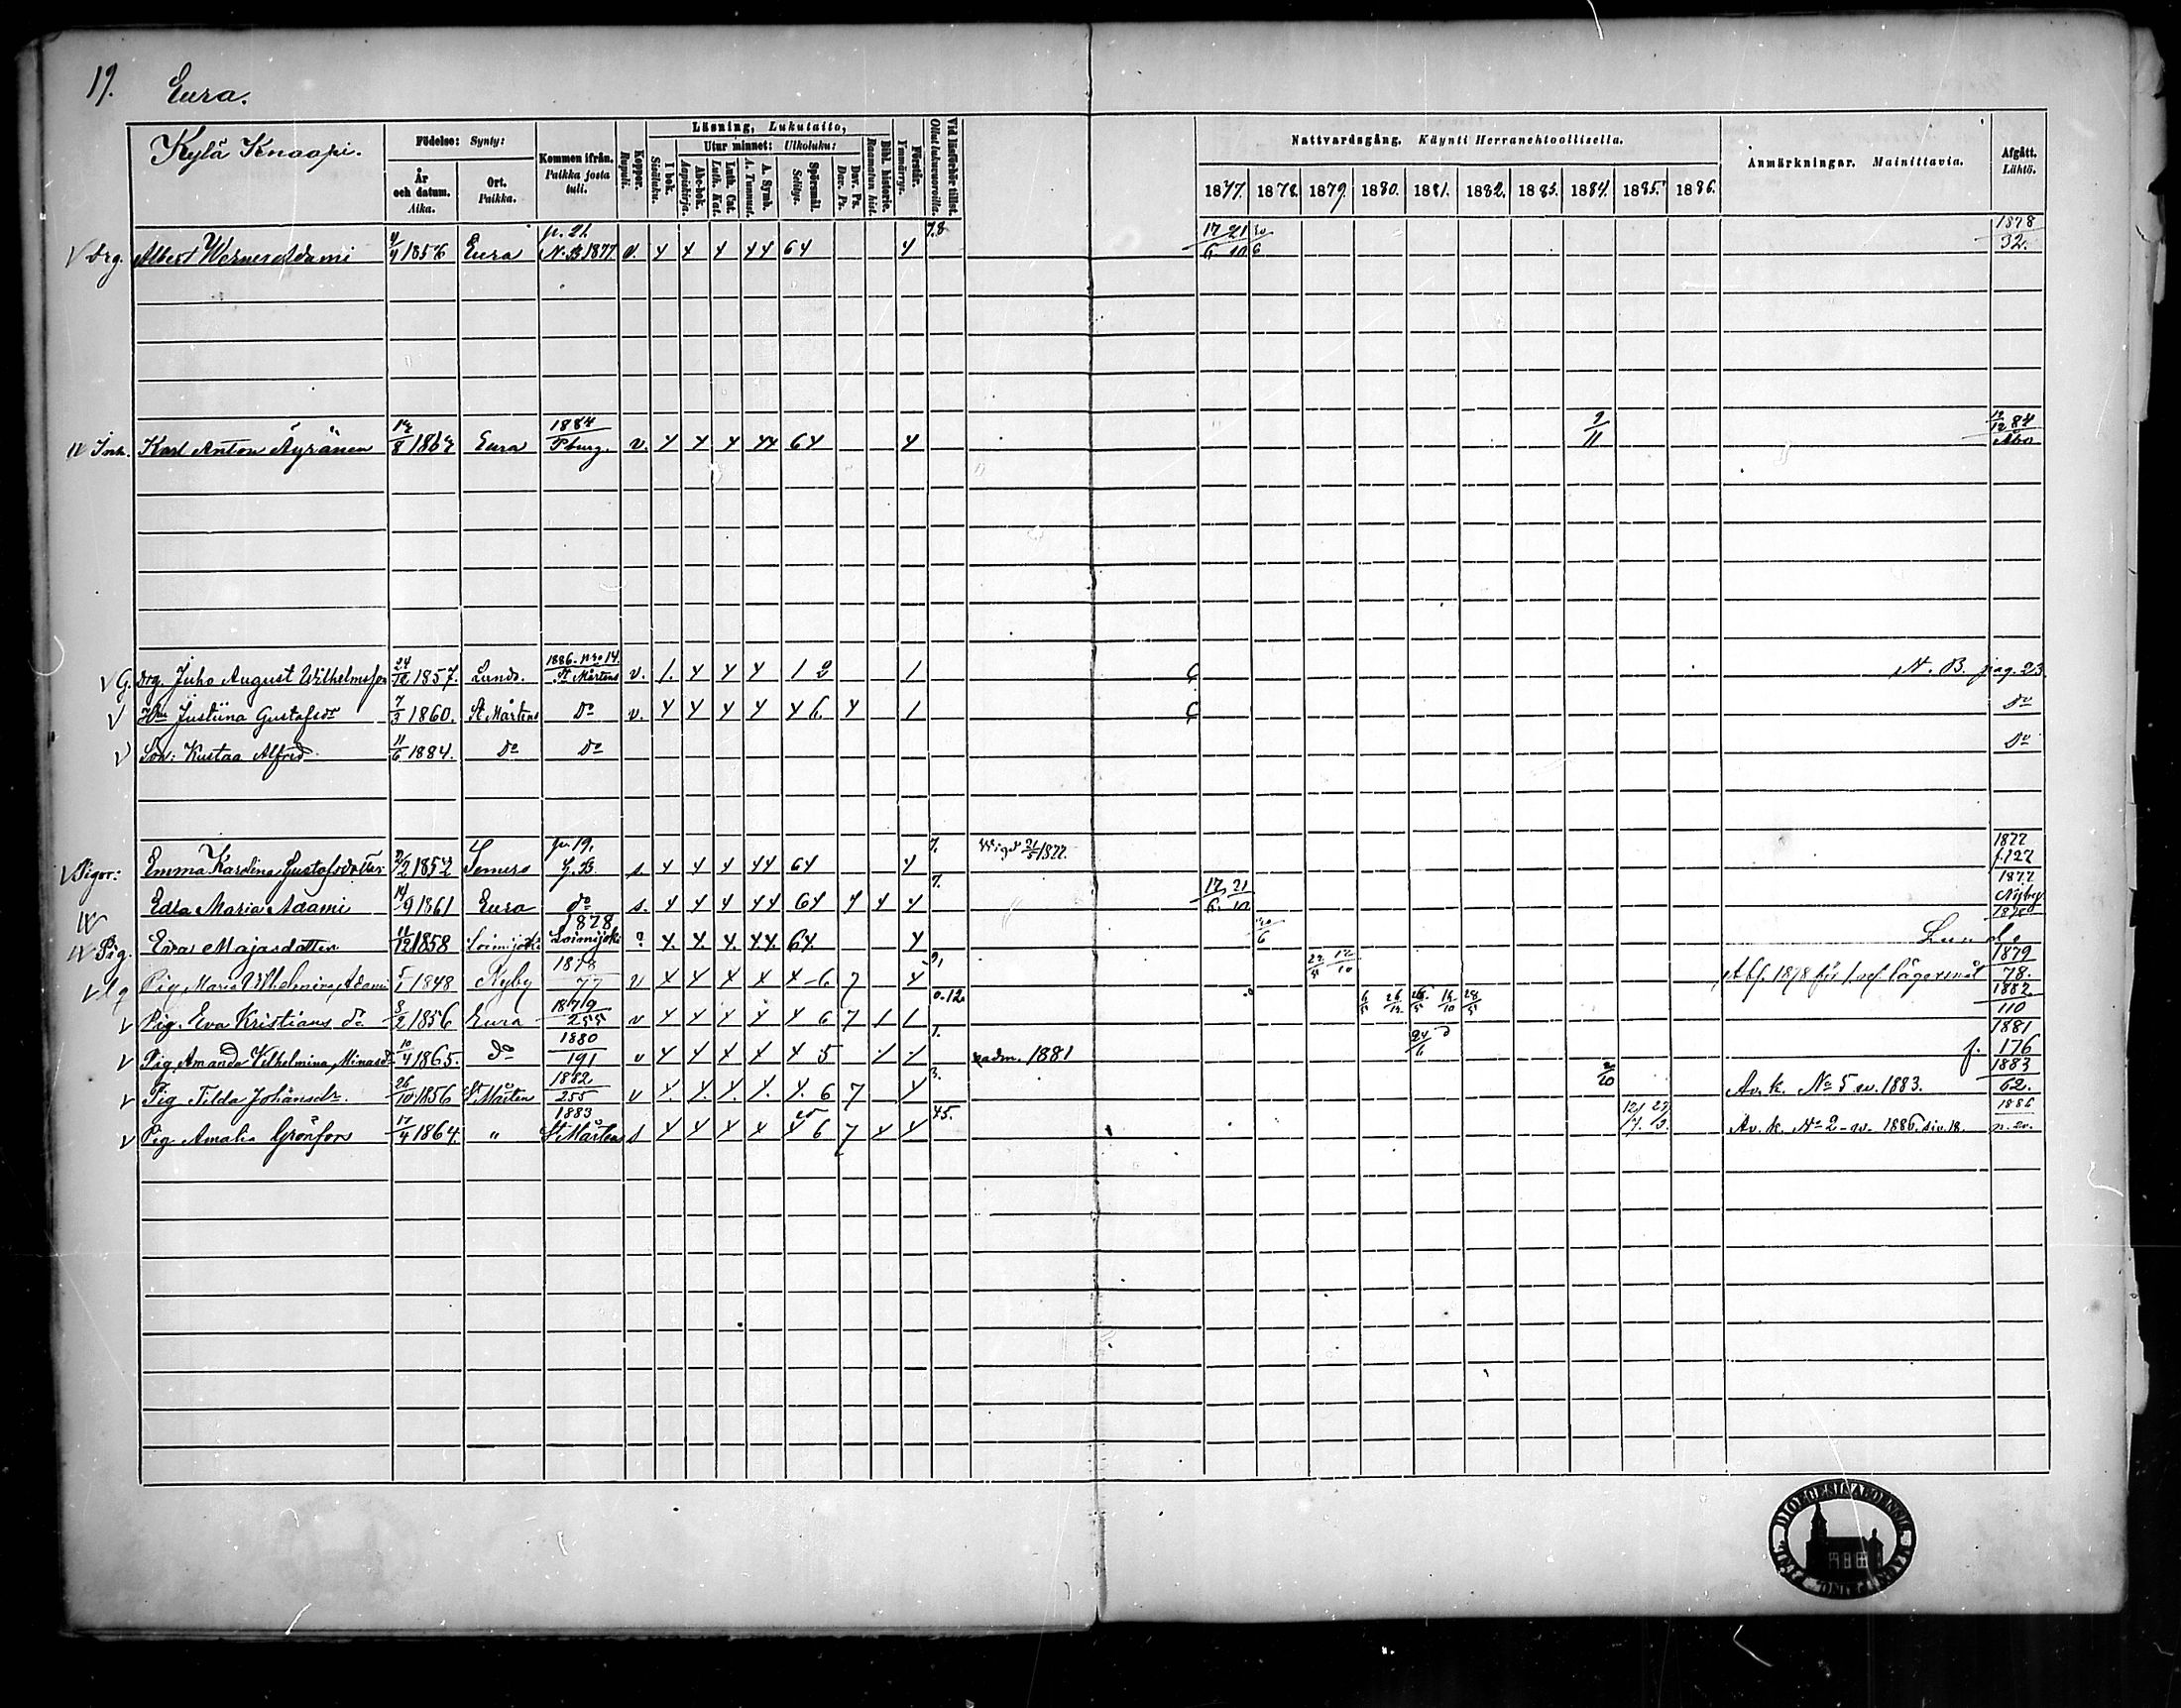 19. Eura.
Kylä Knaapi.
Födelse: Synty:
År och datum. Aika.
Ort. Paikka.
Kommen ifrån. Paikka josta tuli.
Koppor. Rupuli.
Läsning, Lukutaito,
I bok. Sisäluku.
Utur minnet: Ulkoluku:
Abc-bok. Aapiskirja.
Luth. Cat. Luth. Kat.
A. Symb. A. Tunnust.
Spörsmål. Selitys.
Dav. Ps. Dav. Ps.
Bibl. historie. Raamatun hist.
Förstår. Ymmärrys.
Vid läsförhör tillst. Ollut lukuvuoroilla.
Nattvardsgång. Käynti Herranehtoollisella.
1877. 1878. 1879. 1880. 1881. 1882. 1883. 1884. 1885. 1886.
Anmärkningar. Mainittavia.
Afgått. Lähtö.
V Drg. Albert Werner Adami 4/4 1856 Eura p. 21. N. B. 1877 v. 4 4 4 44 64 4 7.8 17/6 21/10 20/6 1878 32.
Inh. Karl Anton Äyränen 8 1862 Eura 1884 Pburg. v. 4 4 4 44 64 4 2/11 12/12 84 Åbo
V G. Drg. Juho August Wilhelmsson 24/12 1857. Lundo. 1886. N:o 14. St Mårtens v. 1. 4 4 4 1 2 1 N. B. pag. 23
V Hu Justiina Gustafsdr 7/3 1860. St Mårtens Do v. 4 4 4 4 4 6. 4 1 Do
V Son: Kustaa Alfred 11/6 1884. Do Do Do
V Pigor: Emma Karolina Gustafsdotter 2/2 1852 Somero pa. 19. G. B. s. 4 4 4 44 64 4 7. Wigd 21/5 1877. 1877 f. 127
Edla Maria Adami 19/9 1861 Eura do s. 4 4 4 44 64 4 4 4 7. 17/6 21/10 1877 Nyby
Pig. Eva Majasdotter 11/12 1858 Loimijoki 1878 Loimijoki ? 4. 4. 4. 4.4. 64. 4 20/6 1878 Lundo
V Pig Maria Vilhelmina Adami 5/1 1848 Nyby 1878 77 v 4 4 4 4 4-6 7 4 9, Abf. 1878 för lägersmål 1879 78.
V Pig. Eva Kristians do 3/2 1856 Eura 1879 255 v 4 4 4 4 4 6 7 1 1 0.12. 1882. 110
V Pig Amanda Vilhelmina Minasdr 10/4 1865. Do 1880 191 v 4 4 4 4 4 5 1. adm. 1881 24/6 1881 f. 176
V Pig Tilda Johansdr. 26/10 1856 St Mårten 1882 255 v 6 7 4 3. Av. k. No 5 w. 1883. 1883 62.
V Pig Amalia Grönfors 17/4 1864. " 1883 St Mårtens s 4 4 4 4 4 6 7 4 4 45. Av. k. No 2 - w. 1886. siv. 18. 1886